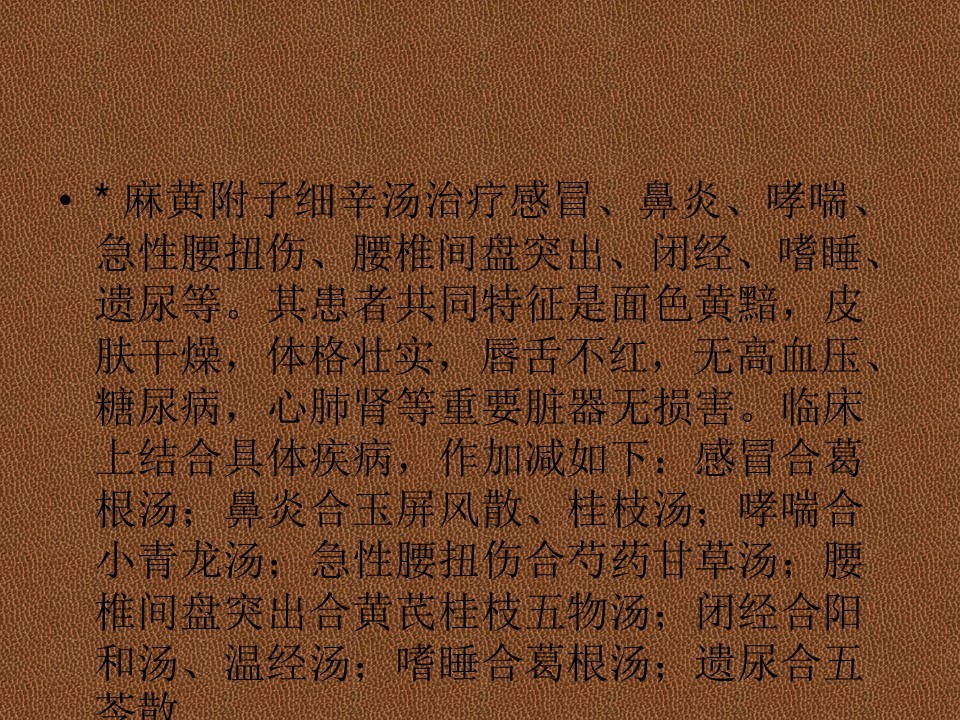 • * 麻黄附子细辛汤治疗感冒、鼻炎、哮喘、
急性腰扭伤、腰椎间盘突出、闭经、嗜睡、
遗尿等。其患者共同特征是面色黄黯，皮
肤干燥，体格壮实，唇舌不红，无高血压、
糖尿病，心肺肾等重要脏器无损害。临床
上结合具体疾病，作加减如下：感冒合葛
根汤；鼻炎合玉屏风散、桂枝汤；哮喘合
小青龙汤；急性腰扭伤合芍药甘草汤；腰
椎间盘突出合黄芪桂枝五物汤；闭经合阳
和汤、温经汤；嗜睡合葛根汤；遗尿合五
苓散